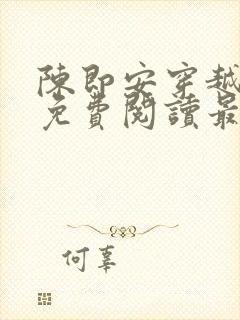 陳即安穿越
免費閱讀最
何辜